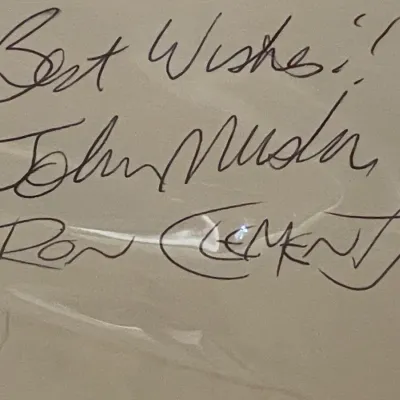 Best Wishes!!
John Musker
RON CLEMENT